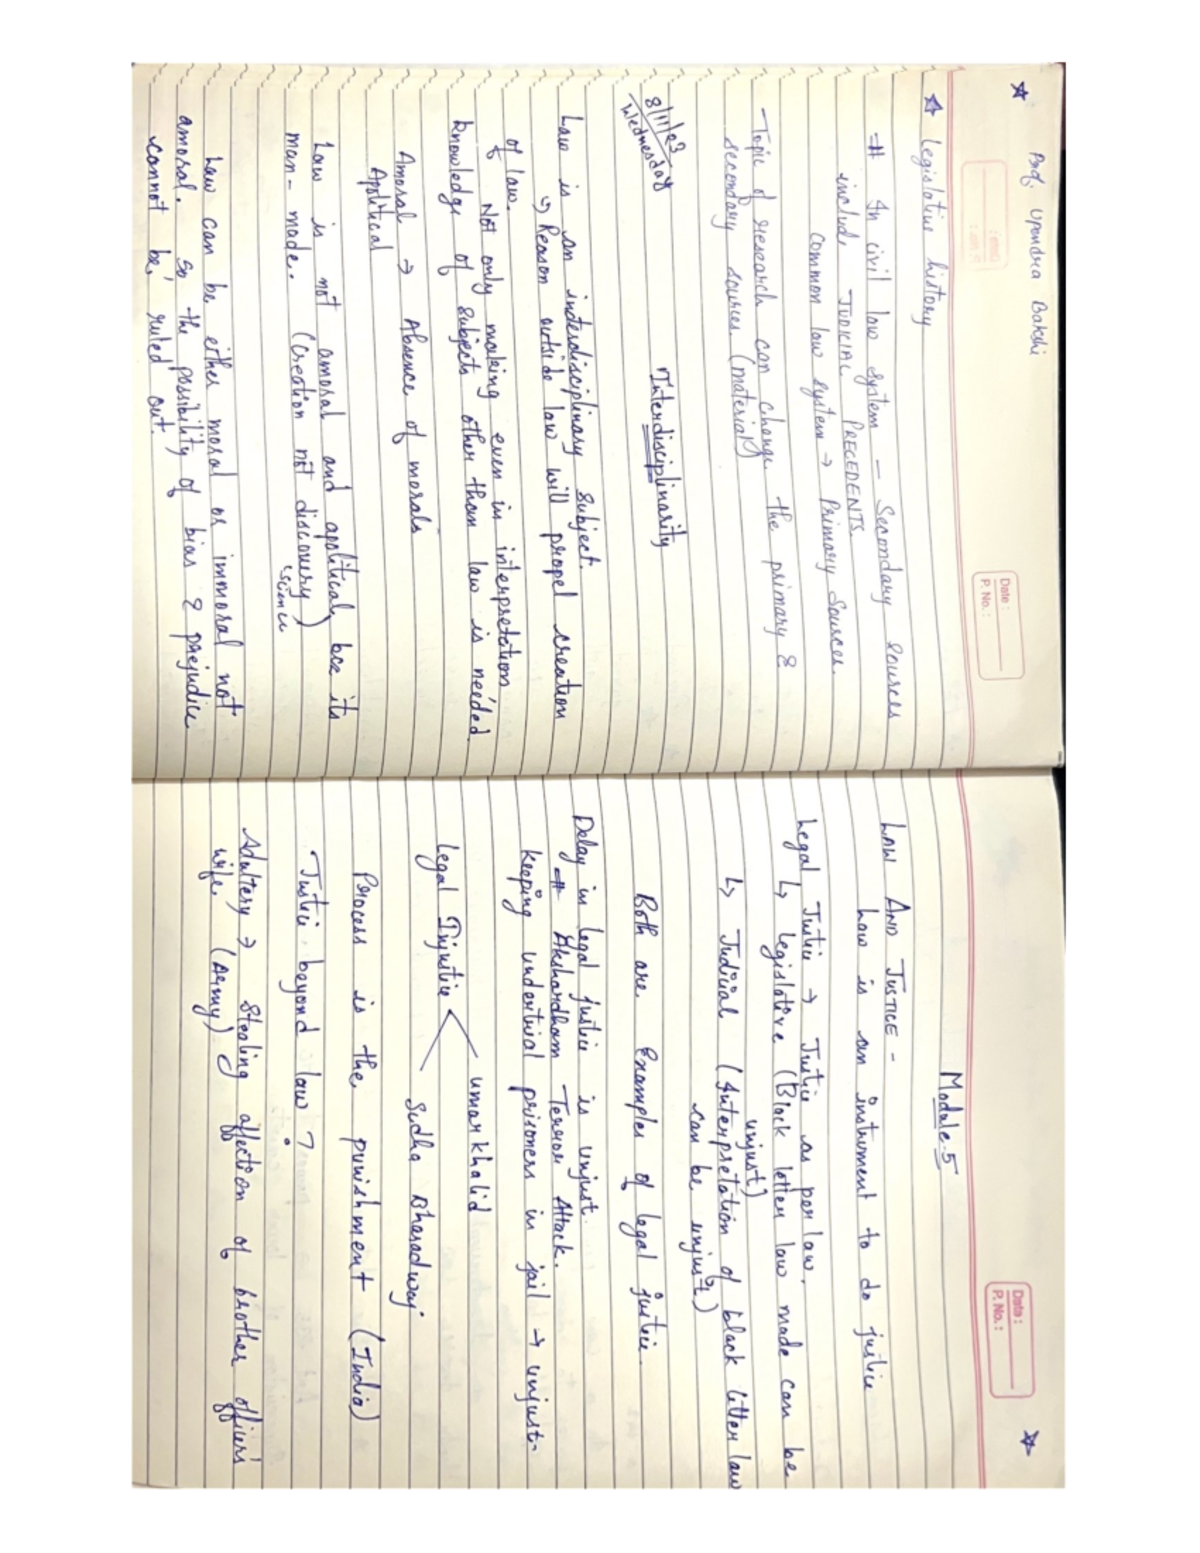 Prof. Upendra Bakshi
Date :
P. No. :
Legislative history
# In civil law system — Secondary sources
include JUDICIAL PRECEDENTS.
common law system → Primary Sources.
- Topic of research can change the primary &
secondary sources. (material)
8/11/23
Wednesday
Interdisciplinarity
Law is an interdisciplinary subject.
↳ Reason outside law will propel creation
of law.
Not only making even in interpretation
knowledge of subjects other than law is needed.
Amoral → Absence of morals
Apolitical
Law is not amoral and apolitical, bcz its
man-made. (Creation not discovery)
science
Law can be either moral or immoral not
amoral. So the possibility of bias & prejudice
cannot be ruled out.
Date :
P. No. :
Module-5
LAW AND JUSTICE -
Law is an instrument to do justice
Legal Justice → Justice as per law.
↳ legislative (Black letter law made can be
unjust)
↳ Judicial (Interpretation of black letter law
can be unjust)
Both are Examples of legal justice.
Delay in legal justice is unjust.
# Akshardham Terror Attack.
Keeping undertrial prisoners in jail → unjust-
Legal Injustice
umar khalid
Sudha Bharadwaj
Process is the punishment (India)
Justice beyond law ?
Adultery → Stealing affection of brother officers'
wife. (Army)